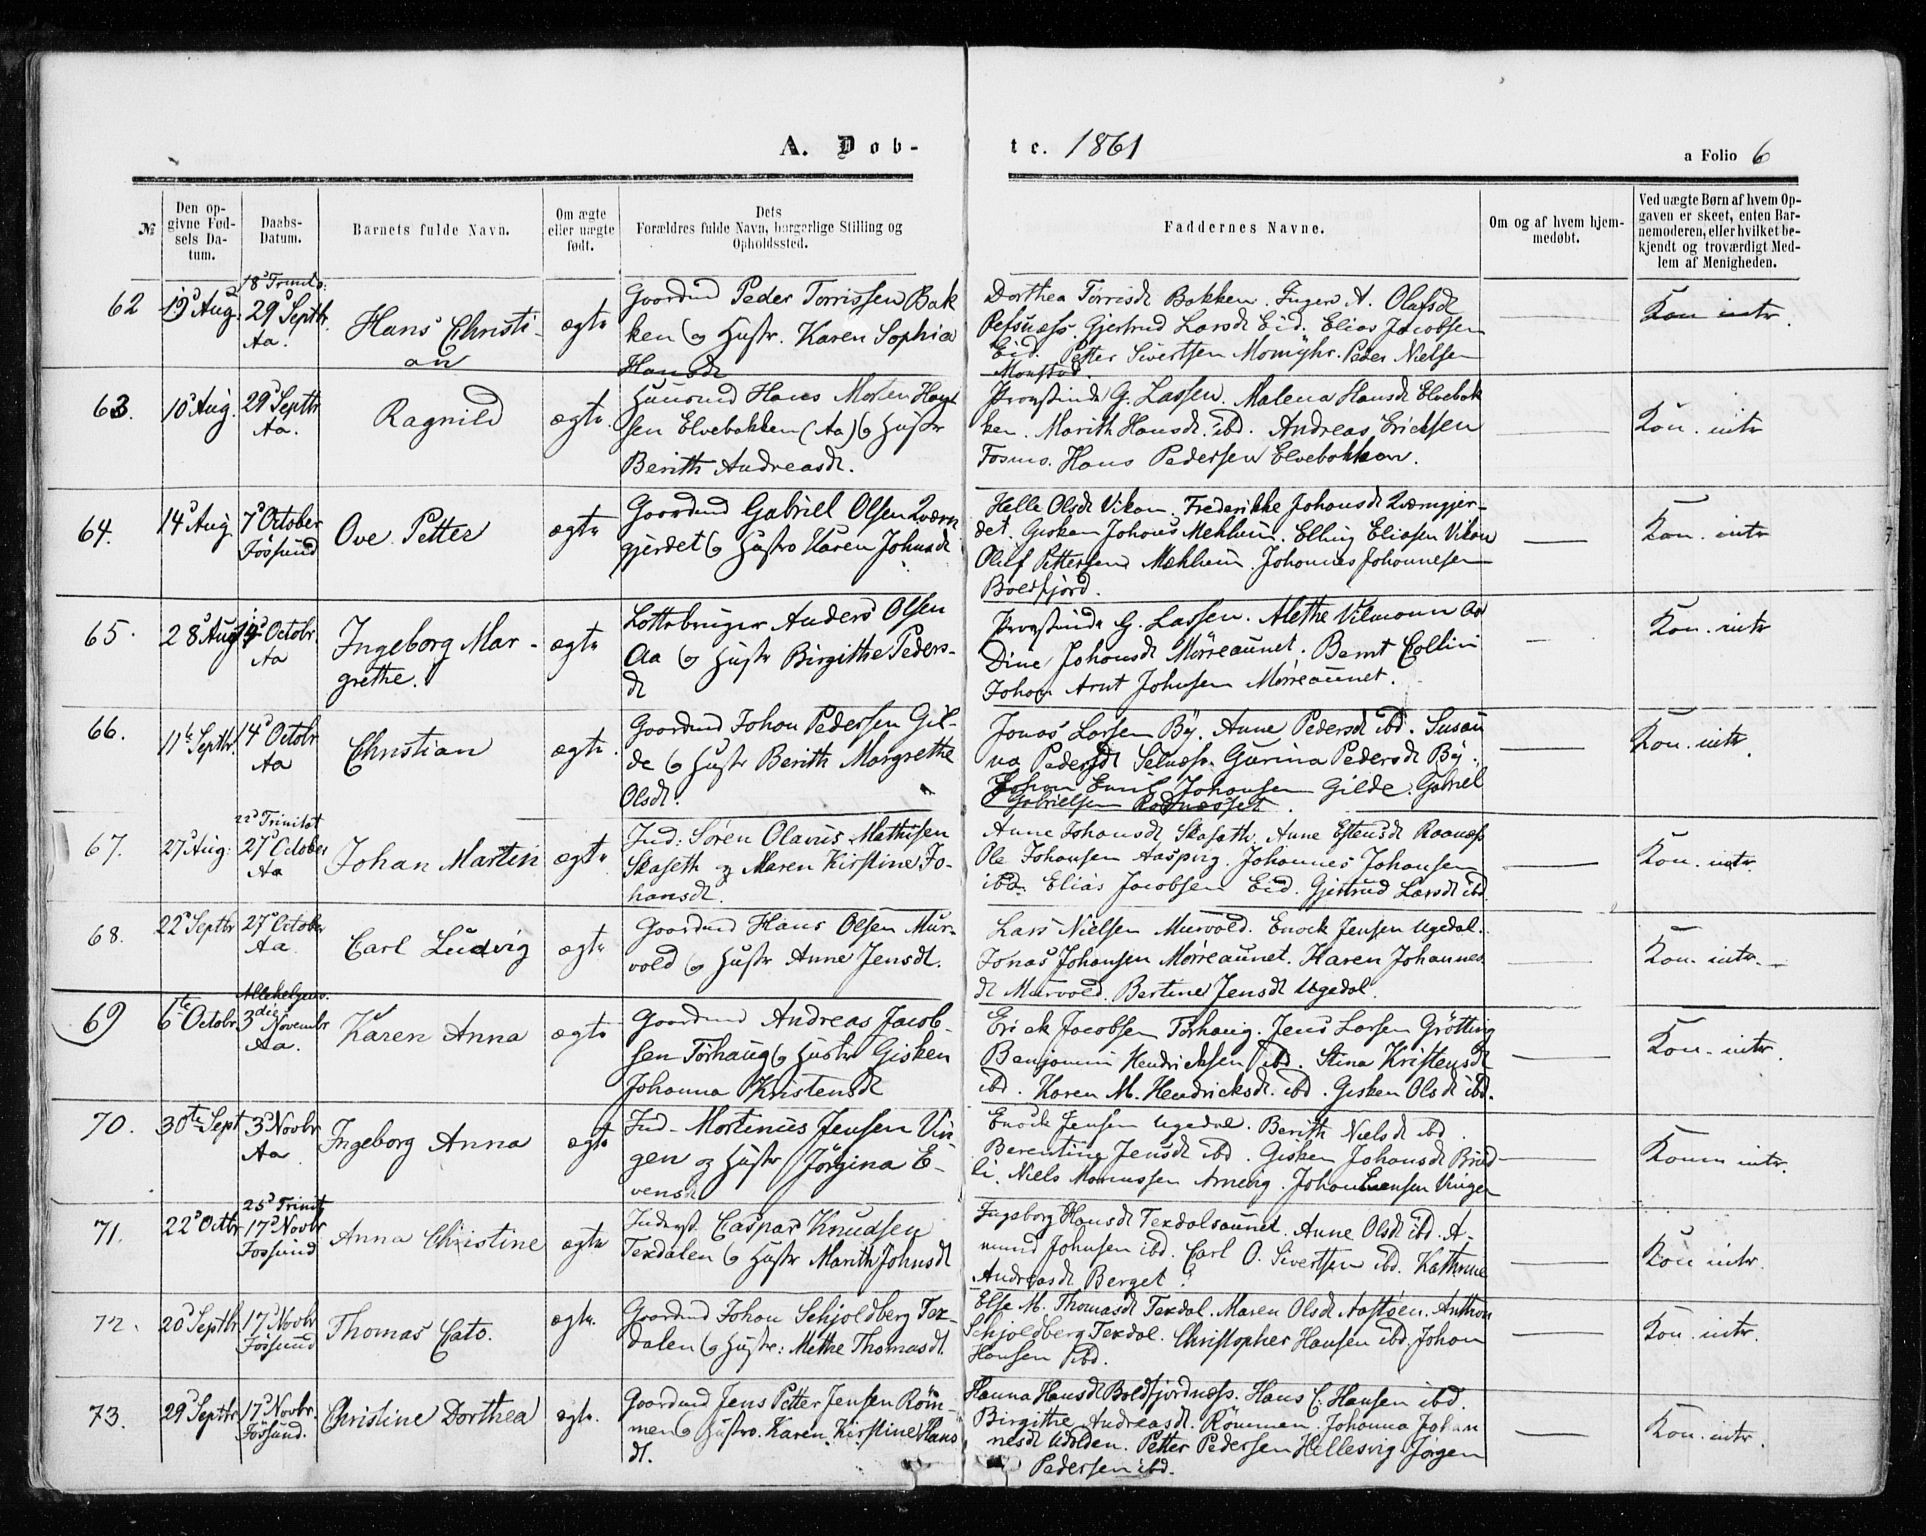 A. Dob-
te. 1861
a Folio 6
№
Den opgivne Fødsels Datum.
Daabs-Datum.
Barnets fulde Navn.
Om ægte eller uægte født.
Dets Forældres fulde Navn, borgerlige Stilling og Opholdssted.
Faddernes Navne.
Om og af hvem hjemmedøbt.
Ved uægte Børn af hvem Opgaven er skeet, enten Barnemoderen, eller hvilket bekjendt og troværdigt Medlem af Menigheden.
62
19 Aug.
29 Septbr.
Aa.
Hans Christi-
an
ægte
Gaardmd Peder Torrissen Bak
ken og Hustr. Karen Sophia
Hansdt
Dorthea Torrisdt Bakken. Inger A. Olafsdt
Gjertrud Larsdt Eid. Elias Jacobsen
Eid. Petter Sivertsen Momyhr. Peder Nielsen
Monstad.
Kon intr.
63.
10 Aug.
29 Septbr.
Aa.
Ragnild
ægte
Huusmd Hans Morten Han
sen Elvebakken (Aa) og Hustr
Berith Andreasdt.
Provstinde G. Lassen. Malena Hansdt Elvebak
ken. Marith Hansdt. ibd. Andreas Ericksen
Fosmo. Hans Pedersen Elvebakken.
Kon. intr
64.
14 Aug.
7 October
Jøssund
Ove Petter
ægte
Gaardmd Gabriel Olsen Qværn
gjerdet og Hustro Karen Johnsdt
Helle Olsdt Vikan. Frederikke Johansdt Qværngjer-
det. Gisken Johans Mehlum. Elling Eliasen Vikan
Oluf Pettersen Mehlum. Johannes Johannesen
Boldfjord.
Kon. intr
65.
28 Aug
14 Octobr.
Aa
Ingeborg Mar-
grethe.
ægte
Anders Olsen
Aa og Hustr Birgithe Peders-
dt
Provstinde G. Lassen. Alethe Vilmann Aa
Dine Johansdt Mørreaunet. Bernt Collin
Johan Arnt Johnsen Mørreaunet.
Kon. intr
66.
11te Septbr.
14 Octobr
Aa
Christian
ægte
Gaardmd Johan Pedersen Gil-
de og Hustr Berith Margrethe
Olsdt.
Jonas Larsen By. Anne Pedersdt ibd. Susan
na Pedersdt Selnæss. Gurina Pedersdt By.
Johan Emil Johansen Gilde. Gabriel
Gabrielsen
Kon. intr.
67.
27 Aug.
22 Trinitat
27 October
Aa
Johan Martin
ægte
Ind: Søren Olavus Mathisen
Skaseth og Maren Kirstine Jo-
hansdt.
Anne Johansdt Skaseth. Anne Estensdt Raanæss
Ole Johansen Aaspvig. Johannes Johansen
ibd. Elias Jacobsen Eid. Gjertrud Larsdt ibd
Kon. intr.
68.
22 Septbr
27 October
Aa.
Carl Ludvig
ægte
Gaardmd Hans Olsen Mur-
vold og Hustr Anne Jensdt.
Lars Nielsen Murvold. Enock Jensen Ugedal.
Jonas Johansen Mørreaunet. Karen Johannes
dt Murvold. Bertine Jensdt Ugedal.
Kon. intr.
69
6te Octobr
Allehelgens-
die
3 Novembr
Aa.
Karen Anna
ægte
Gaardmd Andreas Jacob-
sen Tørhaug og Hustr Gisken
Johanna Kristensdt
Erick Jacobsen Tørhaug. Jens Larsen Grøtting
Benjamin Hendricksen ibd. Stina Kristensdt
ibd. Karen M. Hendricksdt. ibd. Gisken Olsdt ibd.
Kon. intr.
70.
30te Sept
3 Novbr
Aa
Ingeborg Anna
ægte
Ind. Mortinus Jensen Vin
gen og Hustr Jørgina E-
vensdt
Enock Jensen Ugedal. Berith Nielsdt ibd.
Berentine Jensdt ibd. Gisken Johansdt
li. Niels Arneng. Johan Vingen
Konm intr.
71.
22 Octbr
25 Trinit
17 Novbr
Jøssund
Anna Christine
ægte
Inderst. Caspar Knudsen
Texdalen og Hustr Marith Johnsdt
Ingeborg Hansdt Texdalsaunet. Anne Olsdt ibd. A-
mund Johnsen ibd. Carl O. Sivertsen ibd. Kathrine
Andreasdt Berget.
Kon intr.
72.
20 Septbr
17 Novbr
Jøssund
Thomas Cato.
ægte.
Gaardmd Johan Schjoldberg Tex-
dalen og Hustr: Methe Thomasdt.
Else M. Thomasdt Texdal. Maren Olsdt Aastøen. Anthon
Schjoldberg Texdal. Christopher Hansen ibd. Johan
Hansen ibd.
Kon. intr.
73.
29 Septbr
17 Novbr.
Jøssund.
Christine Dorthea
ægte.
Gaardmd Jens Petter Jensen Røm-
men og Hustro. Karen Kirstine Hans
dt.
Hanna Hansdt Boldfjordnæss. Hans C. Hansen ibd.
Birgithe Andreasdt. Rømmen. Johanna Johan
nesdt Petter Pedersen Hellesvig. Jørgen
Pedersen ibd.
Kon. intr.